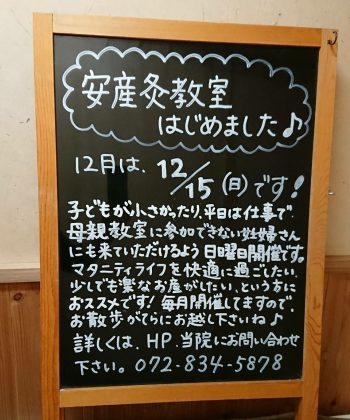 安産灸教室
はじめました♪
12月は、12/15(日)です!
子どもが小さかったり、平日は仕事で
母親教室に参加できない妊婦さん
にも来ていただけるよう日曜日開催です。
マタニティライフを快適に過ごしたい、
少しでも楽なお産がしたい、という方に
おススメです!毎月開催してますので、
お散歩がてらにお越し下さいね♪
詳しくは、HP、当院にお問い合わせ
下さい。072-834-5878